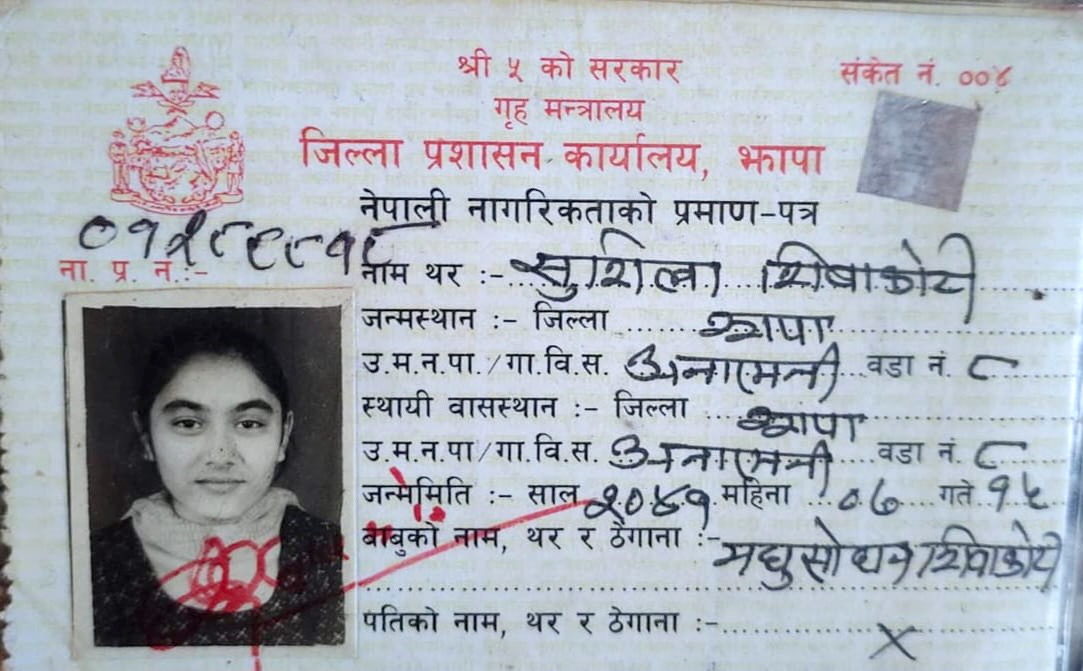 श्री ५ को सरकार
संकेत नं. ००४
गृह मन्त्रालय
जिल्ला प्रशासन कार्यालय, झापा
नेपाली नागरिकताको प्रमाण-पत्र
ना. प्र. नं:-
नाम थर :- सुशिला शिवाकोटी
जन्मस्थान :- जिल्ला झापा
उ.म.न.पा./गा.वि.स. अनारमनी वडा नं. ८
स्थायी वासस्थान :- जिल्ला झापा
उ.म.न.पा/गा.वि.स. अनारमनी वडा नं. ८
जन्ममिति :- साल २०४१ महिना ०७ गते १५
बाबुको नाम, थर र ठेगाना :- शिवाकोटी
पतिको नाम, थर र ठेगाना :- X